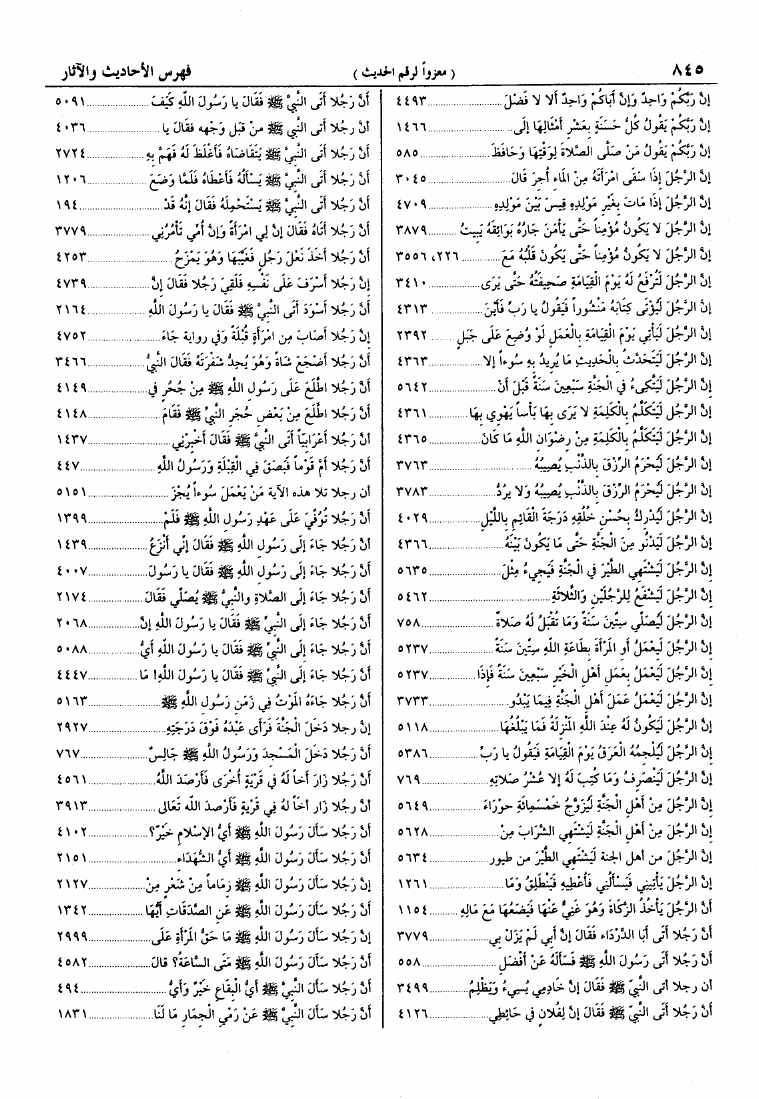 ٨٤٥ ( معزواً لرقم الحديث ) فهرس الأحاديث والآثار
إنَّ رَبَّكُمْ وَاحِدٌ وَإِنَّ أَبَاكُمْ وَاحِدٌ ألا لا فَضْلَ ........ ٤٤٩٣
إنَّ رَبَّكُمْ يَقُولُ كُلُّ حَسَنَةٍ بِعَشْرِ أَمْثَالِهَا إِلَى ........ ١٤٦٦
إنَّ رَبَّكُمْ يَقُولُ مَنْ صَلَّى الصَّلاةَ لِوَقْتِهَا وَحَافَظَ ........ ٥٨٥
إنَّ الرَّجُلَ إِذَا سَقَى امْرَأَتَهُ مِنْ الْمَاءِ أُجِرَ قَالَ ........ ٣٠٤٥
إنَّ الرَّجُلَ إِذَا مَاتَ بِغَيْرِ مَوْلِدِهِ قِيسَ بَيْنَ مَوْلِدِهِ ........ ٤٧٠٩
إنَّ الرَّجُلَ لا يَكُونُ مُؤْمِناً حَتَّى يَأْمَنَ جَارُهُ بَوَائِقَهُ يَبِيتُ ........ ٣٨٧٩
إنَّ الرَّجُلَ لا يَكُونُ مُؤْمِناً حَتَّى يَكُونَ قَلْبُهُ مَعَ ........ ٢٢٦، ٣٥٥٦
إنَّ الرَّجُلَ لَتُرْفَعُ لَهُ يَوْمَ الْقِيَامَةِ صَحِيفَتُهُ حَتَّى يَرَى ........ ٣٤١٠
إنَّ الرَّجُلَ لَيُؤْتَى كِتَابَهُ مَنْشُوراً فَيَقُولُ يا رَبِّ فَأَيْنَ ........ ٤٣١٣
إنَّ الرَّجُلَ لَيَأْتِي يَوْمَ الْقِيَامَةِ بِالْعَمَلِ لَوْ وُضِعَ عَلَى جَبَلٍ ........ ٢٣٩٢
إنَّ الرَّجُلَ لَيَتَحَدَّثُ بِالْحَدِيثِ مَا يُرِيدُ بِهِ سُوءاً إلا ........ ٤٣٦٣
إنَّ الرَّجُلَ لَيَتَّكِىءُ في الْجَنَّةِ سَبْعِينَ سَنَةً قَبْلَ أَنْ ........ ٥٦٤٢
إنَّ الرَّجُلَ لَيَتَكَلَّمُ بِالْكَلِمَةِ لا يَرَى بِهَا بَأْساً يَهْوِي بِهَا ........ ٤٣٦١
إنَّ الرَّجُلَ لَيَتَكَلَّمُ بِالْكَلِمَةِ مِنْ رِضْوَانِ اللَّهِ مَا كَانَ ........ ٤٣٦٥
إنَّ الرَّجُلَ لَيُحْرَمُ الرِّزْقَ بِالذَّنْبِ يُصِيبُهُ ........ ٣٧٦٣
إنَّ الرَّجُلَ لَيُحْرَمُ الرِّزْقَ بِالذَّنْبِ يُصِيبُهُ وَلا يَرُدُّ ........ ٣٧٨٣
إنَّ الرَّجُلَ لَيُدْرِكُ بِحُسْنِ خُلُقِهِ دَرَجَةَ الْقَائِمِ بِاللَّيْلِ ........ ٤٠٢٩
إنَّ الرَّجُلَ لَيَدْنُو مِنَ الْجَنَّةِ حَتَّى مَا يَكُونَ بَيْنَهُ ........ ٤٣٦٦
إنَّ الرَّجُلَ لَيَشْتَهِي الطَّيْرَ في الْجَنَّةِ فَيَجِيءُ مِثْلَ ........ ٥٦٣٥
إنَّ الرَّجُلَ لَيَشْفَعُ لِلرَّجُلَيْنِ وَالثَّلاثَةِ ........ ٥٤٦٢
إنَّ الرَّجُلَ لَيُصَلِّي سِتِّينَ سَنَةً وَمَا تُقْبَلُ لَهُ صَلاةٌ ........ ٧٥٨
إنَّ الرَّجُلَ لَيَعْمَلُ أو الْمَرْأَةَ بِطَاعَةِ اللَّهِ سِتِّينَ سَنَةً ........ ٥٢٣٧
إنَّ الرَّجُلَ لَيَعْمَلُ بِعَمَلِ أَهْلِ الْخَيْرِ سَبْعِينَ سَنَةً فَإِذَا ........ ٥٢٣٧
إنَّ الرَّجُلَ لَيَعْمَلُ عَمَلَ أَهْلِ الْجَنَّةِ فِيمَا يَبْدُو ........ ٣٧٣٣
إنَّ الرَّجُلَ لَيَكُونُ لَهُ عِنْدَ اللَّهِ الْمَنْزِلَةُ فَمَا يَبْلُغُهَا ........ ٥١١٨
إنَّ الرَّجُلَ لَيُلْجِمُهُ الْعَرَقُ يَوْمَ الْقِيَامَةِ فَيَقُولُ يا رَبِّ ........ ٥٣٨٦
إنَّ الرَّجُلَ لَيَنْصَرِفُ وَمَا كُتِبَ لَهُ إلا عُشْرُ صَلاتِهِ ........ ٧٦٩
إنَّ الرَّجُلَ مِنْ أَهْلِ الْجَنَّةِ لَيُزَوَّجُ خَمْسَمِائَةِ حَوْرَاءَ ........ ٥٦٤٩
إنَّ الرَّجُلَ مِنْ أَهْلِ الْجَنَّةِ لَيَشْتَهِي الشَّرَابَ مِنْ ........ ٥٦٢٨
إنَّ الرَّجُلَ من اهل الجنة لَيَشْتَهِي الطَّيْرَ من طيور ........ ٥٦٣٤
إنَّ الرَّجُلَ يَأْتِينِي فَيَسْأَلُنِي فَأُعْطِيهِ فَيَنْطَلِقُ وَمَا ........ ١٢٦١
أَنَّ الرَّجُلَ يَأْخُذُ الزَّكَاةَ وَهُوَ غَنِيٌّ عَنْهَا فَيَضَعُهَا مَعَ مَالِهِ ........ ١١٥٤
أَنَّ رَجُلا أَتَى أَبَا الدَّرْدَاءِ فَقَالَ إِنَّ أَبِي لَمْ يَزَلْ بِي ........ ٣٧٧٩
أَنَّ رَجُلا أَتَى رَسُولَ اللَّهِ ﷺ فَسَأَلَهُ عَنْ أَفْضَلِ ........ ٥٥٨
أن رجلا أتى النَّبِيَّ ﷺ فَقَالَ إِنَّ خَادِمِي يُسِيءُ وَيَظْلِمُ ........ ٣٤٩٩
أَنَّ رَجُلا أَتَى النَّبِيَّ ﷺ فَقَالَ إِنَّ لِفُلانٍ في حَائِطِي ........ ٤١٢٦
أَنَّ رَجُلا أَتَى النَّبِيَّ ﷺ فَقَالَ يا رَسُولَ اللَّهِ كَيْفَ ........ ٥٠٩١
أن رجلا أتى النَّبِيَّ ﷺ منْ قبَل وَجْهه فقالَ يا ........ ٤٠٣٦
أَنَّ رَجُلا أَتَى النَّبِيَّ ﷺ يَتَقَاضَاهُ فَأَغْلَظَ لَهُ فَهَمَّ بِهِ ........ ٢٧٢٤
أَنَّ رَجُلا أَتَى النَّبِيَّ ﷺ يَسْأَلُهُ فَأَعْطَاهُ فَلَمَّا وَضَعَ ........ ١٢٠٦
أَنَّ رَجُلا أَتَى النَّبِيَّ ﷺ يَسْتَحْمِلُهُ فَقَالَ إِنَّهُ قَدْ ........ ١٩٤
أَنَّ رَجُلا أَتَاهُ فَقَالَ إِنَّ لِي امْرَأَةً وَإِنَّ أُمِّي تَأْمُرُنِي ........ ٣٧٧٩
أَنَّ رَجُلا أَخَذَ نَعْلَ رَجُلٍ فَغَيَّبَهَا وَهُوَ يَمْزَحُ ........ ٤٢٥٣
إنَّ رَجُلا أَسْرَفَ عَلَى نَفْسِهِ فَلَقِيَ رَجُلا فَقَالَ إِنَّ ........ ٤٧٣٩
أَنَّ رَجُلا أَسْوَدَ أَتَى النَّبِيَّ ﷺ فَقَالَ يا رَسُولَ اللَّهِ ........ ٢١٦٤
إنَّ رَجُلا أَصَابَ مِن امْرَأَةٍ قُبْلَةً وَفي رواية جَاءَ ........ ٤٧٥٢
أَنَّ رَجُلا أَضْجَعَ شَاةً وَهُوَ يُحِدُّ شَفْرَتَهُ فَقَالَ النَّبِيُّ ........ ٣٤٦٦
أَنَّ رَجُلا اطَّلَعَ عَلَى رَسُولِ اللَّهِ ﷺ مِنْ جُحْرٍ في ........ ٤١٤٩
أَنَّ رَجُلا اطَّلَعَ مِنْ بَعْضِ حُجَرِ النَّبِيِّ ﷺ فَقَامَ ........ ٤١٤٨
أَنَّ رَجُلا أَعْرَابِيّاً أَتَى النَّبِيَّ ﷺ فَقَالَ أَخْبِرْنِي ........ ١٤٣٧
أَنَّ رَجُلا أَمَّ قَوْماً فَبَصَقَ فِي الْقِبْلَةِ وَرَسُولُ اللَّهِ ........ ٤٤٧
ان رجلا تلا هذه الآية مَنْ يَعْمَلْ سُوءاً يُجْزَ ........ ٥١٥١
أَنَّ رَجُلا تُوُفِّيَ عَلَى عَهْدِ رَسُولِ اللَّهِ ﷺ فَلَمْ ........ ١٣٩٩
أَنَّ رَجُلا جَاءَ إِلَى رَسُولِ اللَّهِ ﷺ فَقَالَ إِنِّي أَنْزِعُ ........ ١٤٣٩
أَنَّ رَجُلا جَاءَ إِلَى رَسُولِ اللَّهِ ﷺ فَقَالَ يا رَسُولَ ........ ٤٠٠٧
أَنَّ رَجُلا جَاءَ إِلَى الصَّلاةِ والنَّبِيُّ ﷺ يُصَلِّي فَقَالَ ........ ٢١٧٤
أَنَّ رَجُلا جَاءَ إِلَى النَّبِيِّ ﷺ فَقَالَ يا رَسُولَ اللَّهِ إِنَّ ........ ٢٠٦٨
أَنَّ رَجُلا جَاءَ إِلَى النَّبِيِّ ﷺ فَقَالَ يا رَسُولَ اللَّهِ أَيُّ ........ ٥٠٨٨
أَنَّ رَجُلا جَاءَ إِلَى النَّبِيِّ ﷺ فَقَالَ يا رَسُولَ اللَّهِ! مَا ........ ٤٤٤٧
أَنَّ رَجُلا جَاءَهُ الْمَوْتُ فِي زَمَنِ رَسُولِ اللَّهِ ﷺ ........ ٥١٦٣
إنَّ رجلا دَخَلَ الْجَنَّةَ فَرَأَى عَبْدَهُ فَوْقَ دَرَجَتِهِ ........ ٢٩٢٧
أَنَّ رَجُلا دَخَلَ الْمَسْجِدَ وَرَسُولُ اللَّهِ ﷺ جَالِسٌ ........ ٧٦٧
أَنَّ رَجُلا زَارَ أَخاً لَهُ في قَرْيَةٍ أُخْرَى فَأَرْصَدَ اللَّهُ ........ ٤٥٦١
ان رجُلا زَار أخَاً لهُ في قَرْيَةٍ فأرْصد اللَّه تَعَالى ........ ٣٩١٣
أَنَّ رَجُلا سَأَلَ رَسُولَ اللَّهِ ﷺ أَيُّ الإِسْلامِ خَيْرٌ؟ ........ ٤١٠٢
أَنَّ رَجُلا سَأَلَ رَسُولَ اللَّهِ ﷺ أَيُّ الشُّهَدَاءِ ........ ٢١٥١
إنَّ رَجُلا سَأَلَ رَسُولَ اللَّهِ ﷺ زِمَاماً مِنْ شَعْرٍ مِنْ ........ ٢١٢٧
أَنَّ رَجُلا سَأَلَ رَسُولَ اللَّهِ ﷺ عَنِ الصَّدَقَاتِ أَيُّهَا ........ ١٣٤٢
إنَّ رَجُلا سَأَلَ رَسُولَ اللَّهِ ﷺ مَا حَقُّ الْمَرْأَةِ عَلَى ........ ٢٩٩٩
أَنَّ رَجُلا سَأَلَ رَسُولَ اللَّهِ ﷺ مَتَى السَّاعَةُ؟ قالَ ........ ٤٥٨٢
أَنَّ رَجُلا سَأَلَ النَّبِيَّ ﷺ أَيُّ الْبِقَاعِ خَيْرٌ وَأَيُّ ........ ٤٩٤
أَنَّ رَجُلا سَأَلَ النَّبِيَّ ﷺ عَنْ رَمْيِ الْجِمَارِ مَا لَنَا ........ ١٨٣١